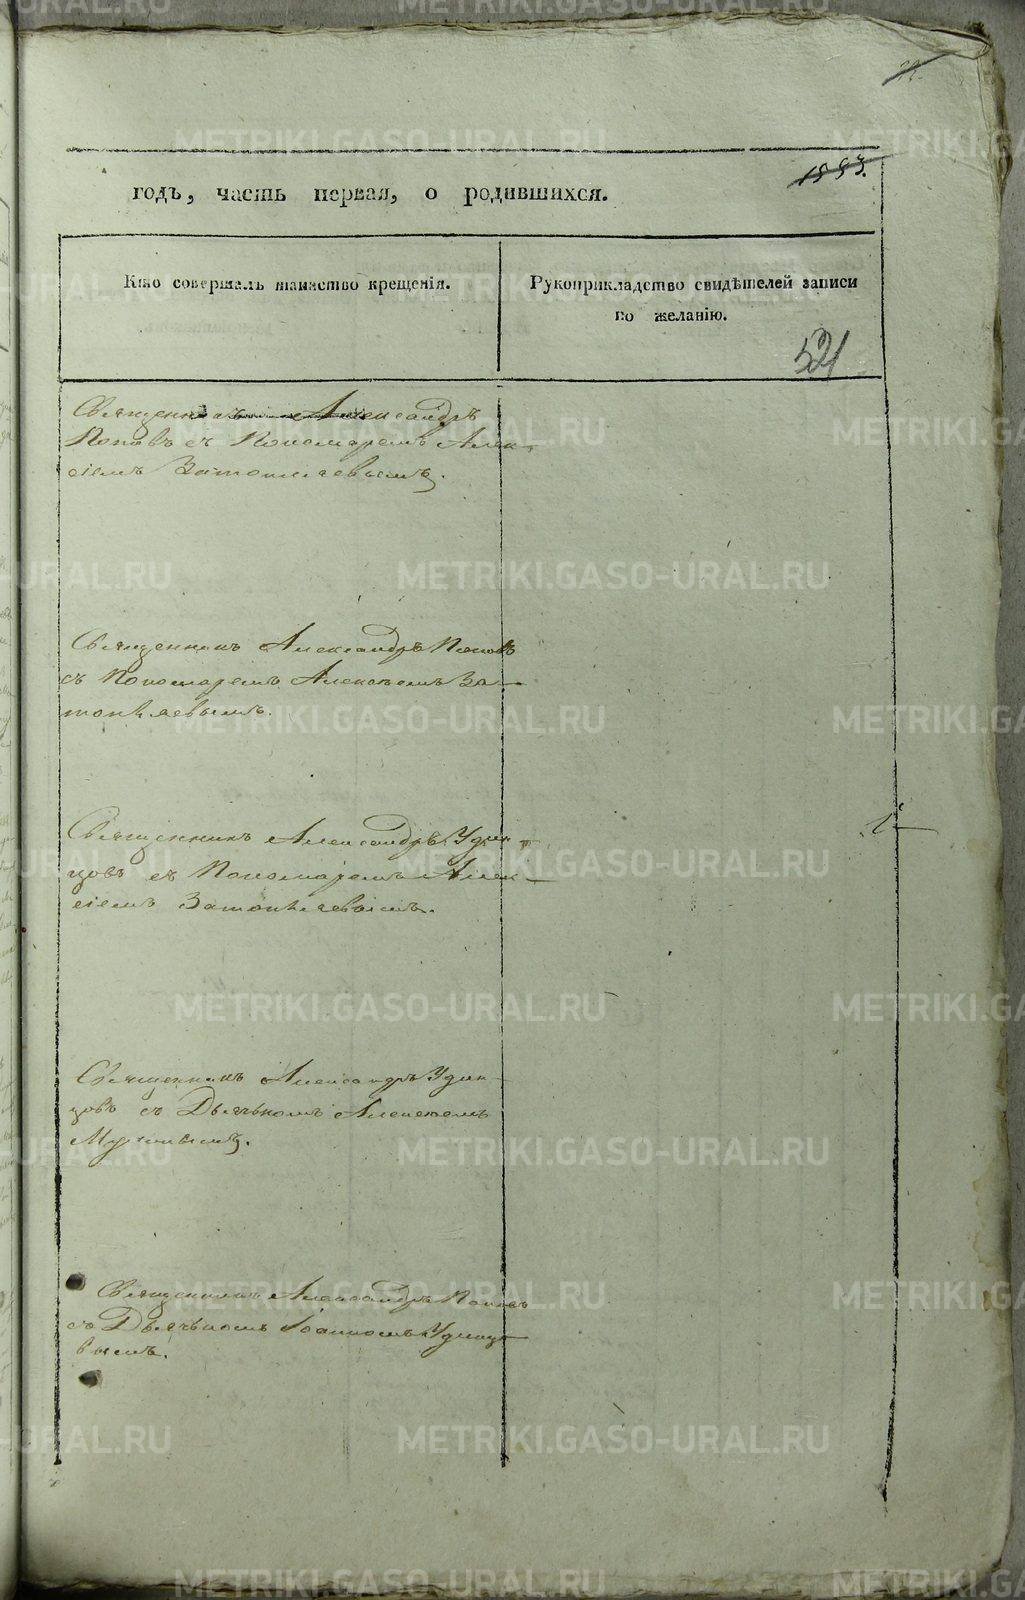 1553.
годъ, часть первая, о родившихся.
Кто совершалъ таинство крещенія.
Рукоприкладство свидѣтелей записи
по желанію.
521
Священникъ Александръ
Поповъ съ Пономаремъ Алек-
сіемъ Затопляевымъ.
Священникъ Александръ Поповъ
съ Пономаремъ Алексѣемъ За-
топляевымъ.
Священникъ Александръ Удин-
цовъ съ Пономаремъ Алек-
сіемъ Затопляевымъ.
Священникъ Александръ Удин-
цовъ съ Дьячькомъ Алексѣемъ
Священникъ Александръ Поповъ
съ Дьячькомъ Іоанномъ Удинцо-
вымъ.
METRIKI.GASO-URAL.RU